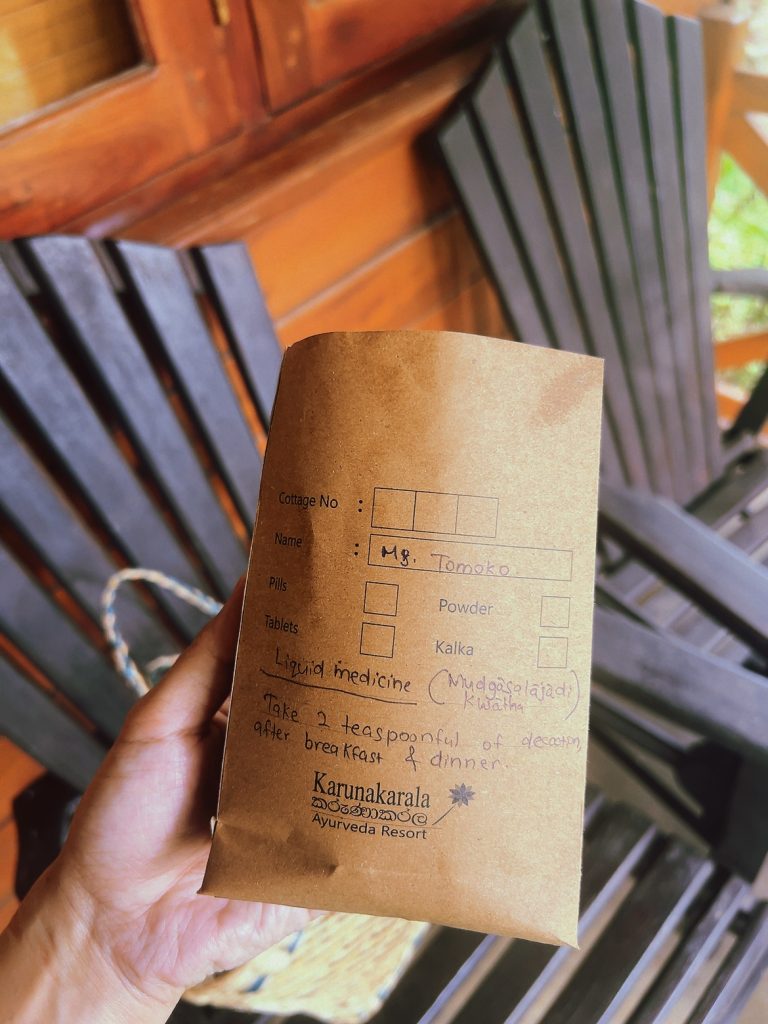 Cottage No :
Name : Ms. Tomoko.
Pills
Powder
Tablets
Kalka
Liquid medicine (Mudgasalājadi Kwatha)
Take 2 teaspoonful of decoction
after breakfast & dinner.
Karunakarala
කරුණාකරල
Ayurveda Resort